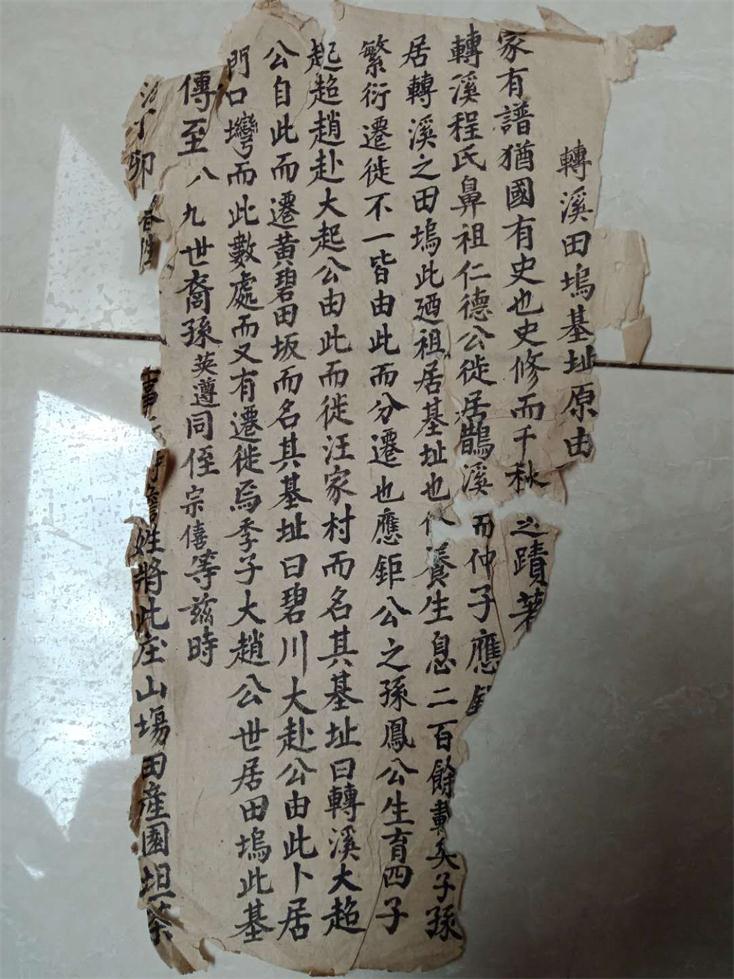 轉溪田塢基址原由
家有譜猶國有史也史修而千秋之蹟
轉溪程氏鼻祖仁德公徙居鵲溪而仲子應
居轉溪之田塢此廼祖居基址也養生息二百餘載矣子孫
繁衍遷徙不一皆由此而分遷也應鉅公之孫鳳公生育四子
起超趙赴大起公由此而徙汪家村而名其基址曰轉溪大超
公自此而遷黃碧田坂而名其基址曰碧川大赴公由此卜居
門口塆而此數處而又有遷徙焉季子大趙公世居田塢此基
傳至八九世裔孫英遵同侄宗僖等茲時
丁卯姓將此庄山塲田產園坦